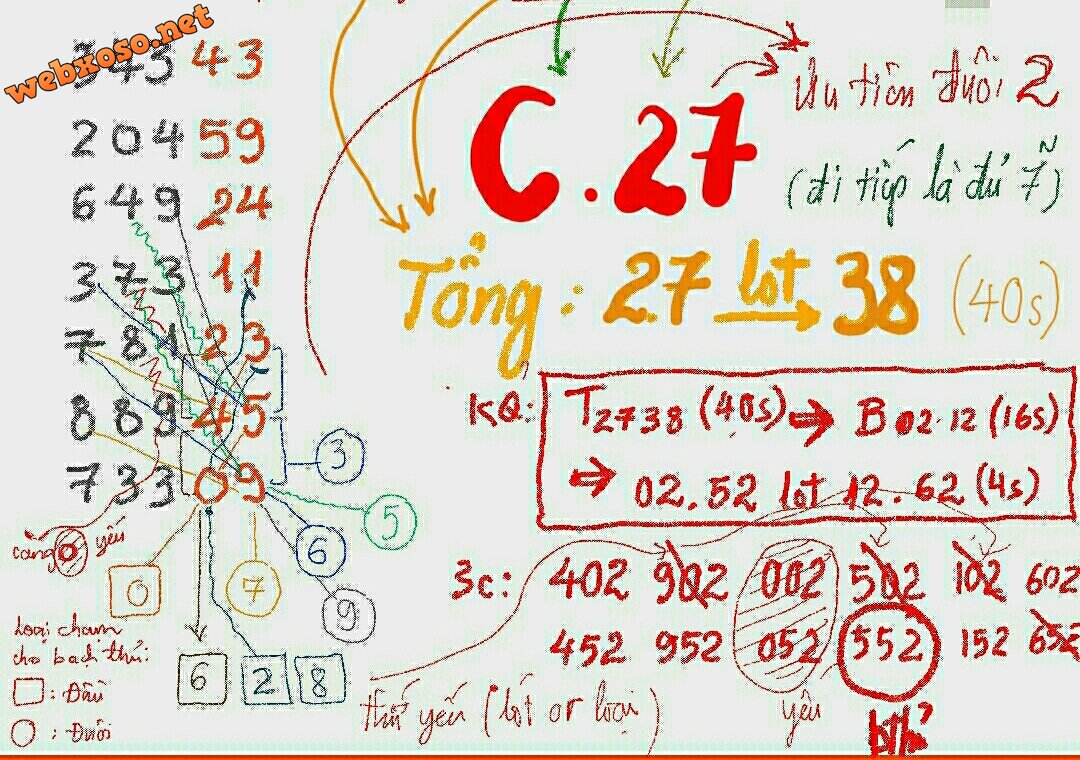 webxoso.net
343 43
204 59
649 24
373 11
781 23
889 45
733 09
C.27
Ưu tiên đuôi 2
(đi tiếp là đủ 7)
Tổng: 27 lót 38 (40s)
KQ: T2738 (40s) ⇒ B 02.12 (16s)
⇒ 02.52 lót 12.62 (4s)
3c: 402 902 002 502 102 602
452 952 052 552 152 652
3
5
6
7
9
0
6 2 8
càng 0 yếu
Loại chạm
cho bạch thủ:
□: Đầu
○: Đuôi
thứ yếu (lót or loại)
yếu